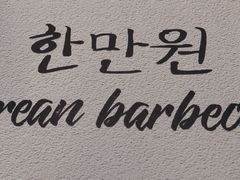 한만원
rean barbec